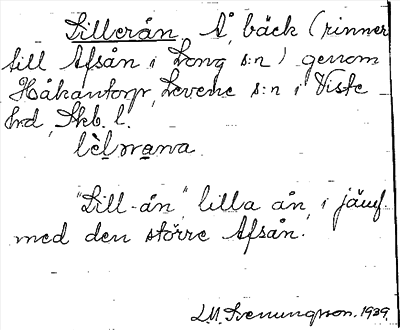 Lillerån, Å, bäck (rinner
till Afsån i Long s:n) genom
Håkantorp, Levene s:n i Viste
hd, Skb. l.
lèlnrana.
"Lill-ån," lilla ån, i jämf.
med den större Afsån.
L.M. Svenungsson. 1929.